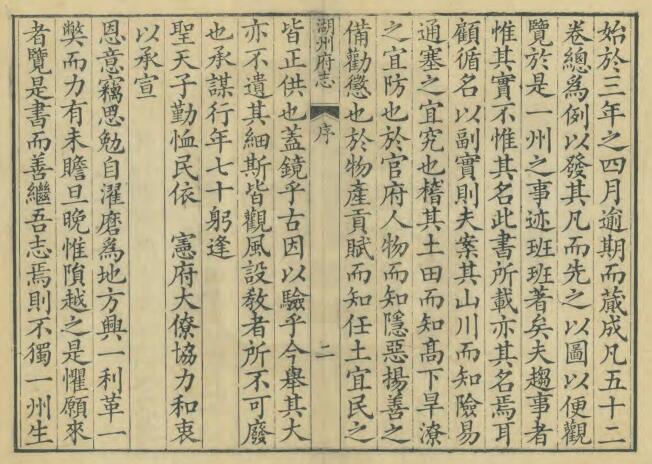 始於三年之四月逾期而蕆成凡五十二
卷總為例以發其凡而先之以圖以便觀
覽於是一州之事迹班班著矣夫趨事者
惟其實不惟其名此書所載亦其名焉耳
顧循名以副實則夫案其山川而知險易
通塞之宜究也稽其土田而知高下旱潦
之宜防也於官府人物而知隱惡揚善之
備勸懲也於物產貢賦而知任土宜民之
湖州府志
序
二
皆正供也蓋鏡乎古因以驗乎今舉其大
亦不遺其細斯皆觀風設教者所不可廢
也承謀行年七十躬逢
聖天子勤恤民依 憲府大僚協力和衷
以承宣
恩意竊思勉自濯磨為地方興一利革一
弊而力有未贍旦晚惟隕越之是懼願來
者覽是書而善繼吾志焉則不獨一州生